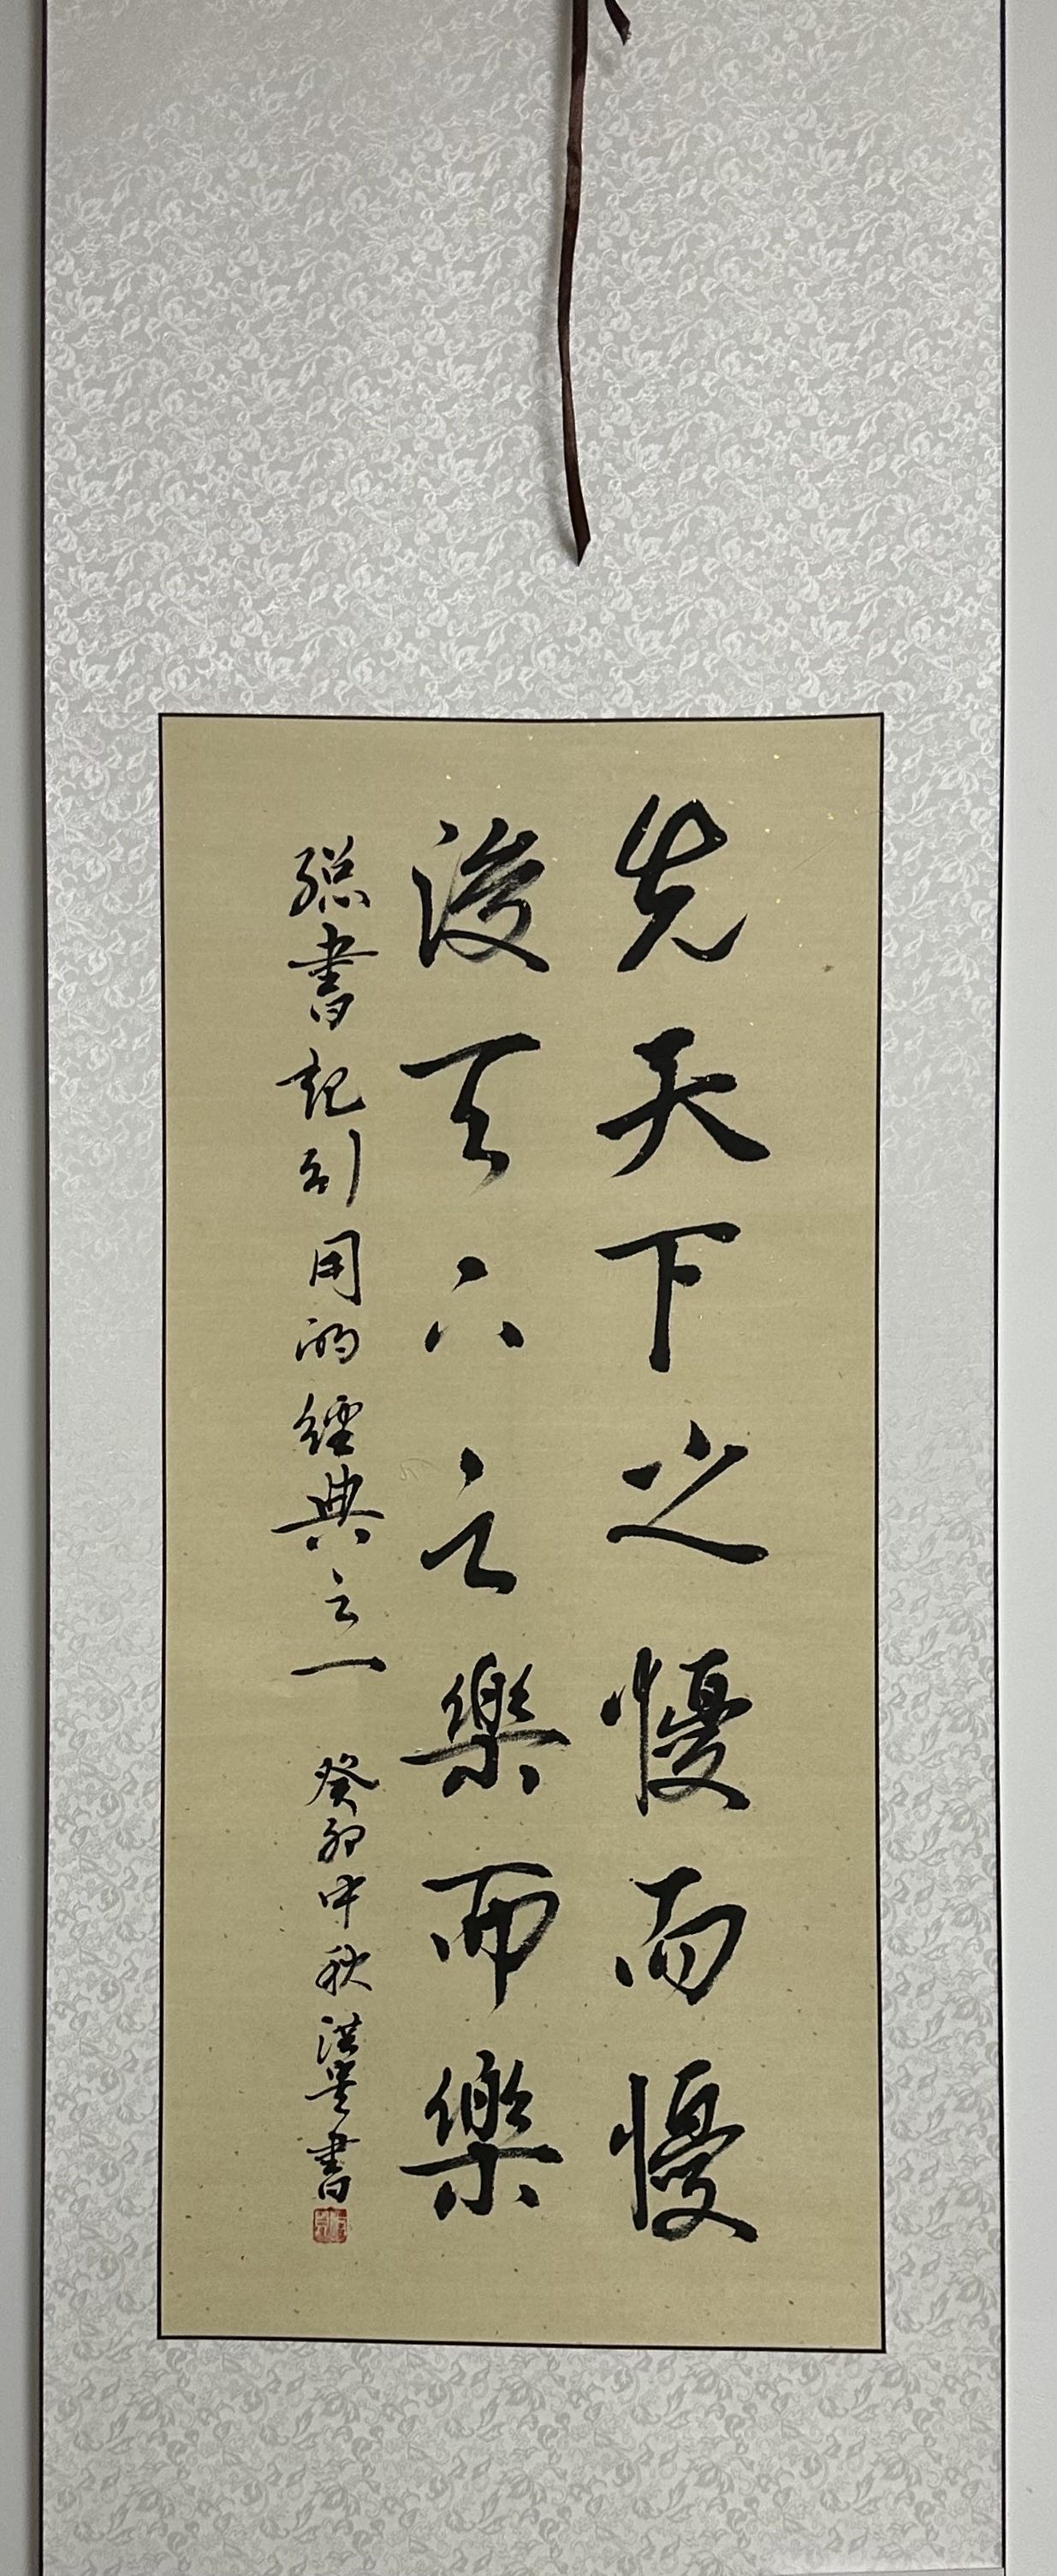 先天下之憂而憂
後天下之樂而樂
總書記引用的經典之一 癸卯中秋 洪 書